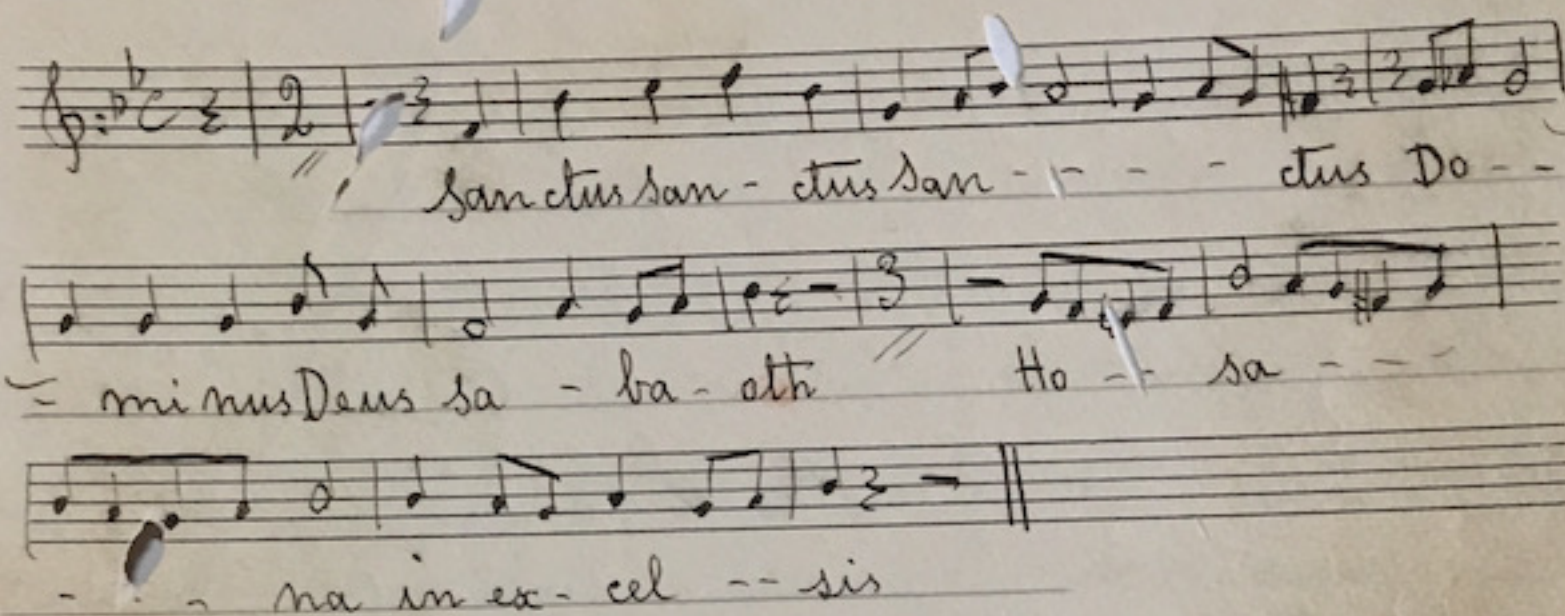 2
Sanctus san - ctus san - - - - ctus Do - -
3
= mi nus Deus sa - ba - oth Ho - - sa - - - -
- - - na in ex - cel - - sis